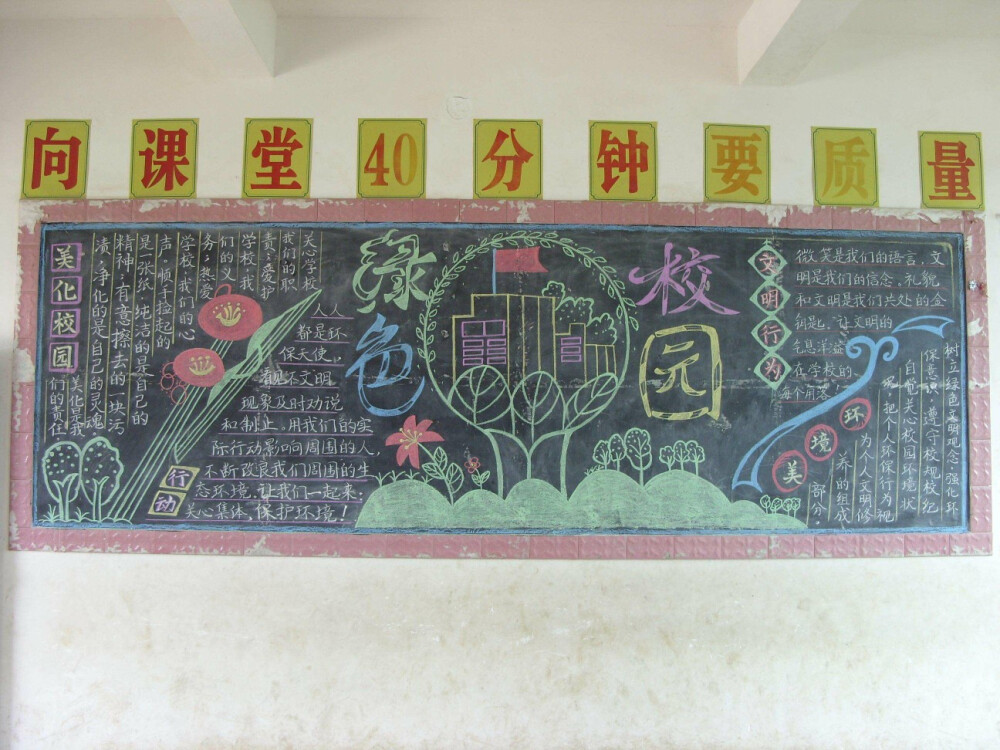 向课堂40分钟要质量
绿色校园
美化校园
关心学校
我们的职
责;爱护
学校,我
们的义
务;热爱
学校,我们的心
声,顺手拉起的
是一张纸,纯洁的是自己的
精神;有意擦去的一块污
渍,净化的是自己的灵魂
美化是我
们的责任
行动
人人
都是环
保天使。
看见不文明
现象及时劝说
和制止,用我们的实
际行动影响向周围的人,
不断改良我们周围的生
态环境.让我们一起来:
关心集体,保护环境!
文明行为
微笑是我们的语言,文
明是我们的信念,礼貌
和文明是我们共处的金
钥匙.让文明的
气息洋溢
在学校的
每个角落!
环境美
树立绿色文明观念,强化环
保意识,遵守校规校纪,
自觉关心校园环境状
况,把个人环保行为视
为个人文明修
养的组成
部分.